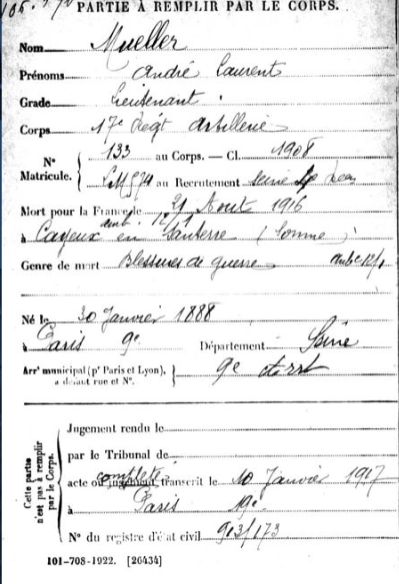 PARTIE À REMPLIR PAR LE CORPS.
Nom Mueller
Prénoms André Laurent
Grade Lieutenant
Corps 17e Régt Artillerie
Nº Matricule. { 133 au Corps. — Cl. 1908
au Recrutement Seine
Mort pour la France le 21 Aout 1916
à Cayeux en Santerre (Somme)
Genre de mort Blessures de guerre
Né le 30 Janvier 1888
à Paris 9e Département Seine
Arrt municipal (pr Paris et Lyon), à défaut rue et Nº. } 9e Arrt
Cette partie n'est pas à remplir par le Corps.
Jugement rendu le
par le Tribunal de
complété
acte ou jugement transcrit le 10 Janvier 1917
à Paris 19e
Nº du registre d'état civil 903/173
101-708-1922. [26434]